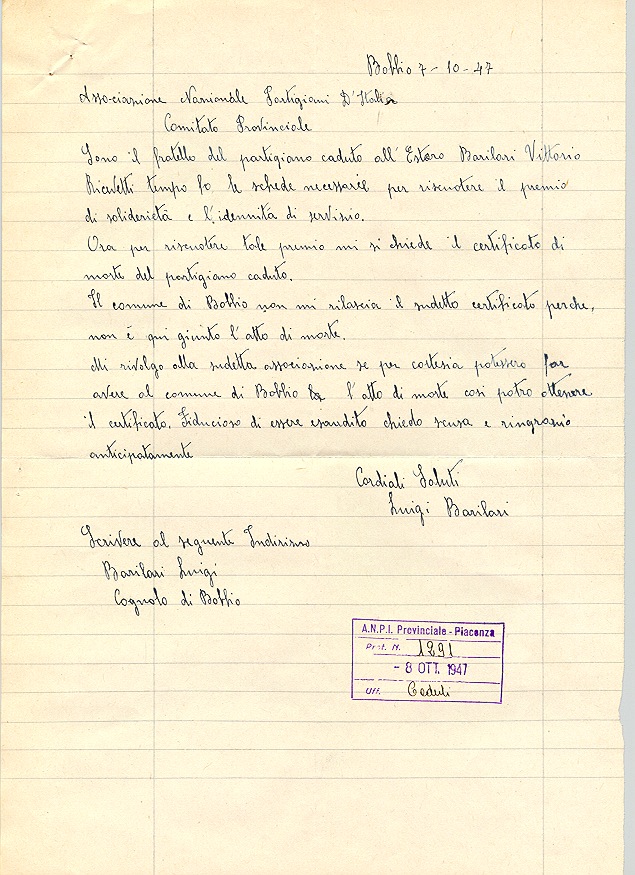 Bobbio 7-10-47
Associazione Nazionale Partigiani D'Italia
Comitato Provinciale
Sono il fratello del partigiano caduto all'Estero Barilari Vittorio
Ricevetti tempo fa le schede necessarie per riscuotere il premio
di solidarietà e l'idennità di servizio.
Ora per riscuotere tale premio mi si chiede il certificato di
morte del partigiano caduto.
Il comune di Bobbio non mi rilascia il sudetto certificato perche,
non è qui giunto l'atto di morte.
Mi rivolgo alla sudetta associazione se per cortesia potessero far
avere al comune di Bobbio l'atto di morte cosi potro ottenere
il certificato. Fiducioso di essere esaudito chiedo scusa e ringrazio
anticipatamente
Cordiali Saluti
Luigi Barilari
Scrivere al seguente Indirizzo
Barilari Luigi
di Bobbio
A.N.P.I. Provinciale - Piacenza
Prot. N. 1291
- 8 OTT. 1947
Uff. Caduti